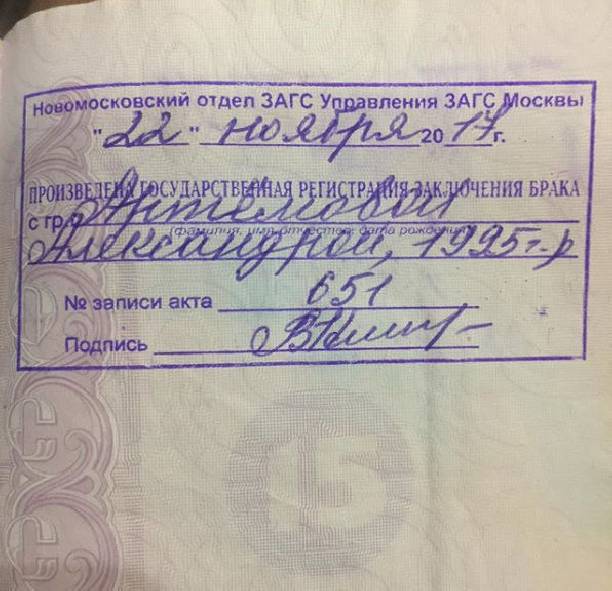 Новомосковский отдел ЗАГС Управления ЗАГС Москвы
"22" ноября 2017 г.
ПРОИЗВЕДЕНА ГОСУДАРСТВЕННАЯ РЕГИСТРАЦИЯ ЗАКЛЮЧЕНИЯ БРАКА
с гр. Артёмовой
(фамилия, имя, отчество, дата рождения)
Александрой, 1995 г.р
№ записи акта 651
Подпись
15